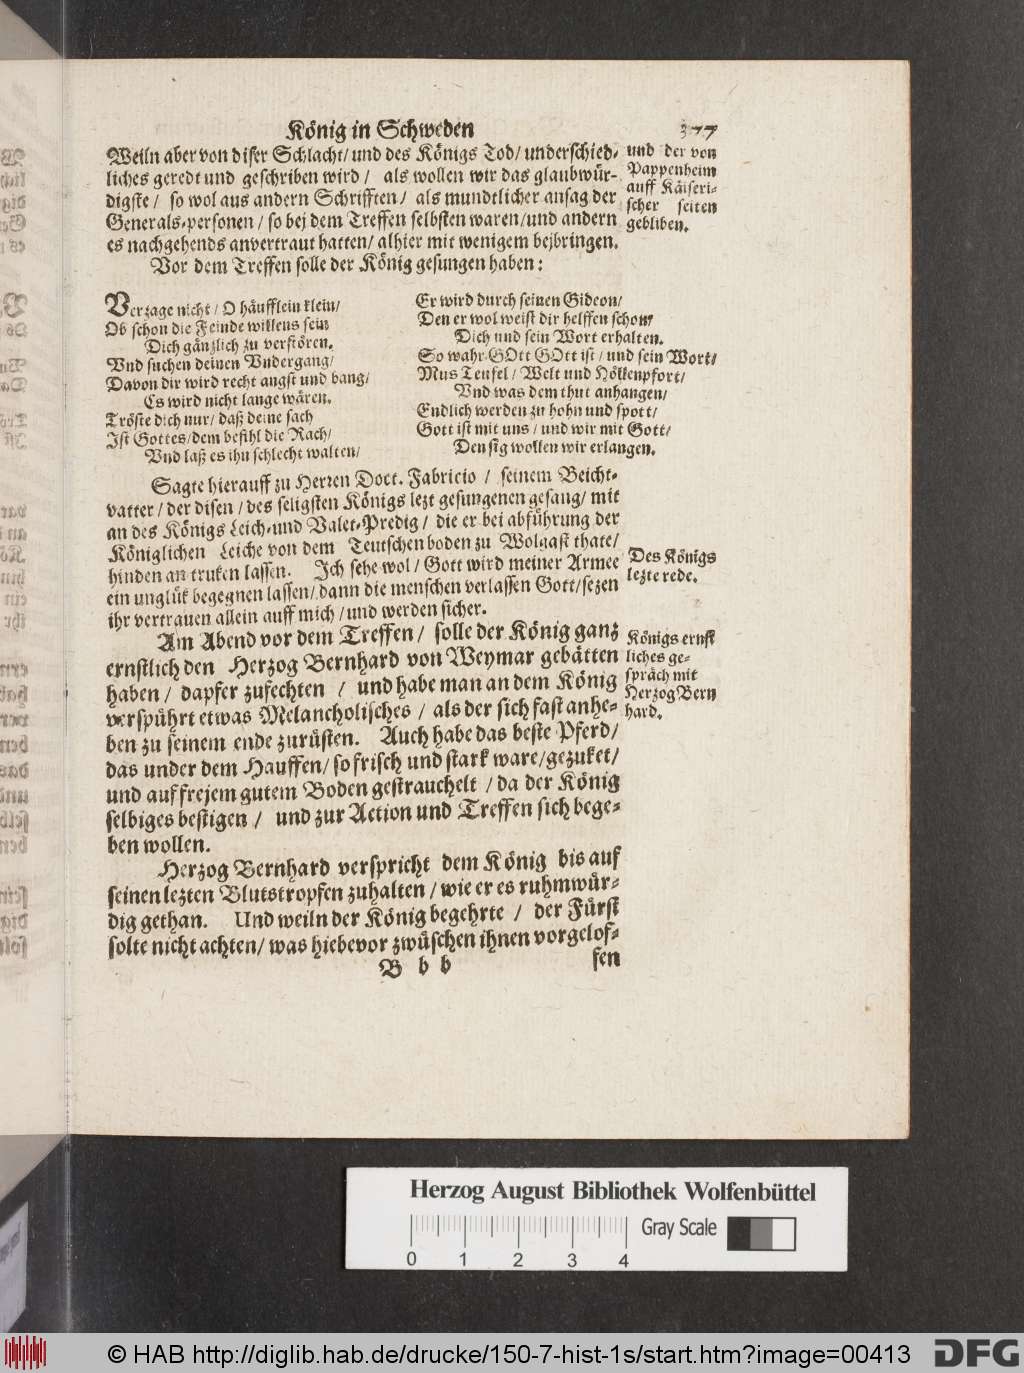 König in Schweden
377
Weiln aber von diser Schlacht/ und des Königs Tod/ underschied-
liches geredt und geschriben wird / als wollen wir das glaubwür-
digste / so wol aus andern Schrifften / als mundtlicher ansag der
Generals-personen / so bej dem Treffen selbsten waren/und andern
es nachgehends anvertraut hatten/ alhier mit wenigem bejbringen.
Vor dem Treffen solle der König gesungen haben:
und der von
Pappenheim
auff Käiseri-
scher seiten
gebliben.
Verzage nicht / O häufflein klein/
Ob schon die Feinde willens sein
Dich gänzlich zu verstören.
Vnd suchen deinen Vndergang/
Davon dir wird recht angst und bang/
Es wird nicht lange wären.
Tröste dich nur/ daß deine sach
Ist Gottes/dem befihl die Rach/
Vnd laß es ihn schlecht walten/
Er wird durch seinen Gideon/
Den er wol weist dir helffen schon/
Dich und sein Wort erhalten.
So wahr GOtt GOtt ist / und sein Wort/
Mus Teufel / Welt und Höllenpfort/
Vnd was dem thut anhangen/
Endlich werden zu hohn und spott/
Gott ist mit uns / und wir mit Gott/
Den sig wollen wir erlangen.
Sagte hierauff zu Herren Doct. Fabricio / seinem Beicht-
vatter / der disen / des seligsten Königs lezt gesungenen gesang/ mit
an des Königs Leich-und Valet-Predig / die er bei abführung der
Königlichen Leiche von dem Teutschen boden zu Wolgast thate/
hinden an truken lassen. Ich sehe wol / Gott wird meiner Armee
ein unglük begegnen lassen/ dann die menschen verlassen Gott/sezen
ihr vertrauen allein auff mich / und werden sicher.
Des Königs
lezte rede.
Am Abend vor dem Treffen / solle der König ganz
ernstlich den Herzog Bernhard von Weymar gebätten
haben / dapfer zufechten / und habe man an dem König
verspührt etwas Melancholisches / als der sich fast anhe-
ben zu seinem ende zurüsten. Auch habe das beste Pferd/
das under dem Hauffen/ so frisch und stark ware/gezuket/
und auf frejem gutem Boden gestrauchelt / da der König
selbiges bestigen / und zur Action und Treffen sich bege-
ben wollen.
Königs ernst
liches ge-
spräch mit
Herzog Bern
hard.
Herzog Bernhard verspricht dem König bis auf
seinen lezten Blutstropfen zuhalten / wie er es ruhmwür-
dig gethan. Und weiln der König begehrte / der Fürst
solte nicht achten/ was hiebevor zwüschen ihnen vorgelof-
B b b
fen
Herzog August Bibliothek Wolfenbüttel
Gray Scale
0 1 2 3 4
© HAB http://diglib.hab.de/drucke/150-7-hist-1s/start.htm?image=00413
DFG